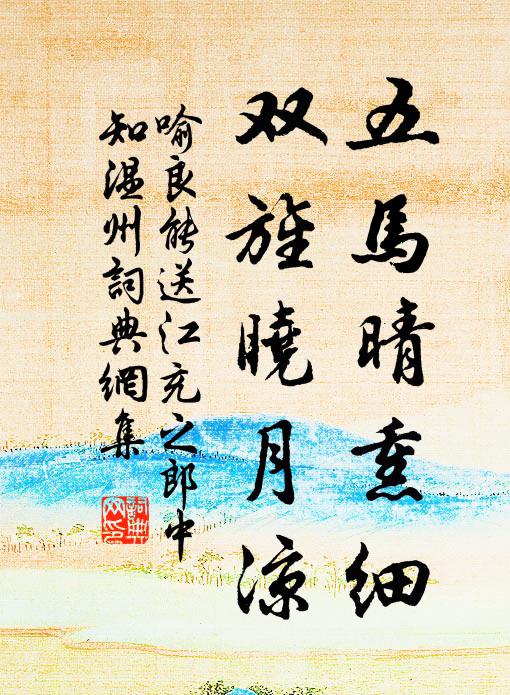 五馬晴熏細
双旌曉月涼
喻良能送江充之郎中
知温州詞典網集
詞典